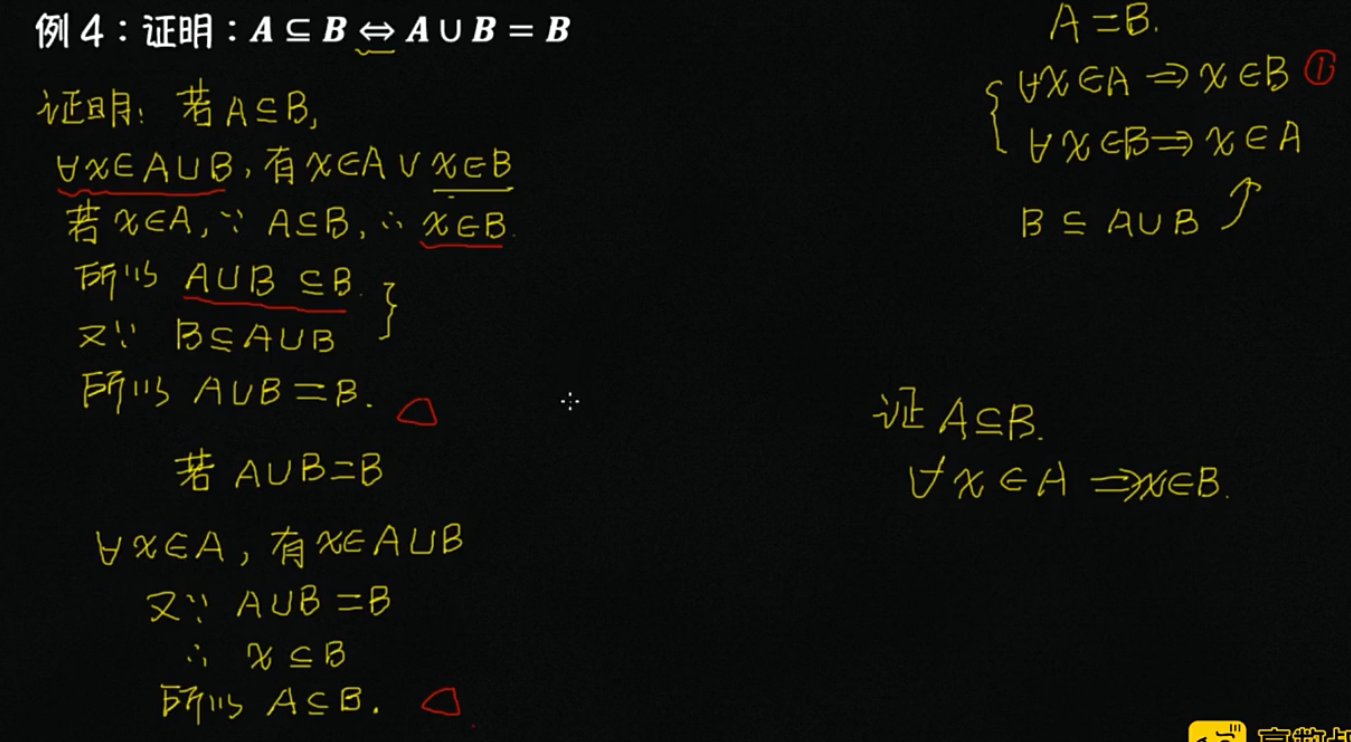 例 4：证明：A ⊆ B ⇔ A ∪ B = B
证明: 若 A⊆B,
∀x∈A∪B, 有 x∈A ∨ x∈B
若 x∈A, ∵ A⊆B, ∴ x∈B.
所以 A∪B ⊆B.
又∵ B⊆A∪B
所以 A∪B=B.
若 A∪B=B
∀x∈A, 有 x∈A∪B
又∵ A∪B=B
∴ x⊆B
所以 A⊆B.
A=B.
∀x∈A ⇒ x∈B ①
∀x∈B ⇒ x∈A
B ⊆ A∪B
证 A⊆B.
∀x∈A ⇒ x∈B.